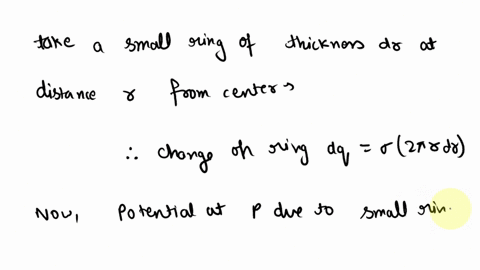 take a small ring of thickness dr at
distance r from center →
∴ charge on ring dq = σ(2πrdr)
Now, Potential at P due to small rin